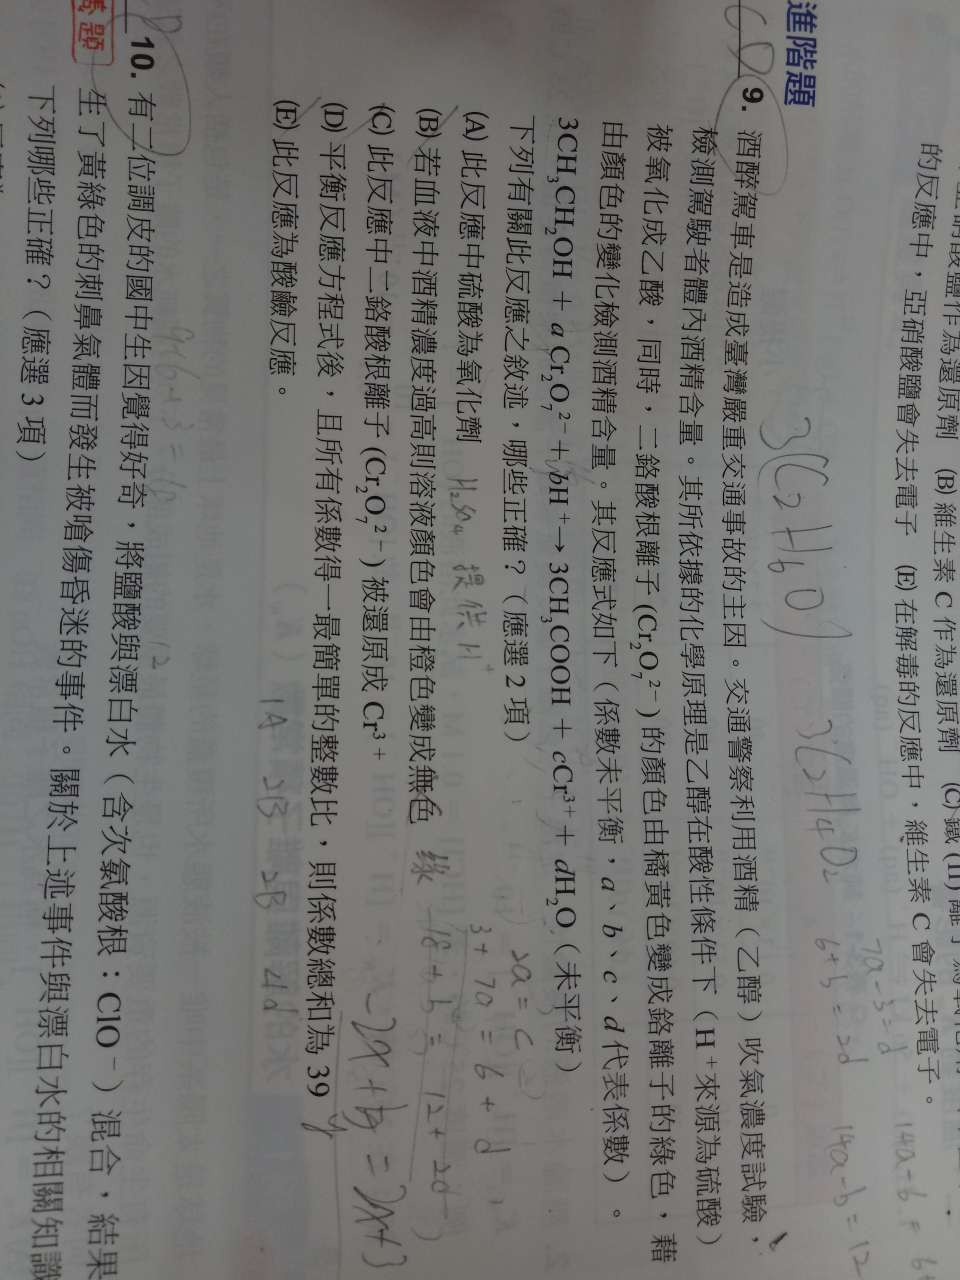 的反應中，亞硝酸鹽會失去電子 (E) 在解毒的反應中，維生素 C 會失去電子。
進階題
CD 9. 酒醉駕車是造成臺灣嚴重交通事故的主因。交通警察利用酒精（乙醇）吹氣濃度試驗，
檢測駕駛者體內酒精含量。其所依據的化學原理是乙醇在酸性條件下（H⁺來源為硫酸）
被氧化成乙酸，同時，二鉻酸根離子 (Cr₂O₇²⁻) 的顏色由橘黃色變成鉻離子的綠色，藉
由顏色的變化檢測酒精含量。其反應式如下（係數未平衡，a、b、c、d 代表係數）。
3CH₃CH₂OH + a Cr₂O₇²⁻ + bH⁺ → 3CH₃COOH + cCr³⁺ + dH₂O（未平衡）
下列有關此反應之敘述，哪些正確？（應選 2 項）
(A) 此反應中硫酸為氧化劑 H₂SO₄ 提供 H⁺
(B) 若血液中酒精濃度過高則溶液顏色會由橙色變成無色 綠
(C) 此反應中二鉻酸根離子 (Cr₂O₇²⁻) 被還原成 Cr³⁺
(D) 平衡反應方程式後，且所有係數得一最簡單的整數比，則係數總和為 39
(E) 此反應為酸鹼反應。
10. 有二位調皮的國中生因覺得好奇，將鹽酸與漂白水（含次氯酸根：ClO⁻）混合，結果
生了黃綠色的刺鼻氣體而發生被嗆傷昏迷的事件。關於上述事件與漂白水的相關知識
下列哪些正確？（應選 3 項）
3(C₂H₆O)
3C₂H₄O₂
7a-3=d
6+b=2d
14a-b=12
2a=c
3+7a=6+d